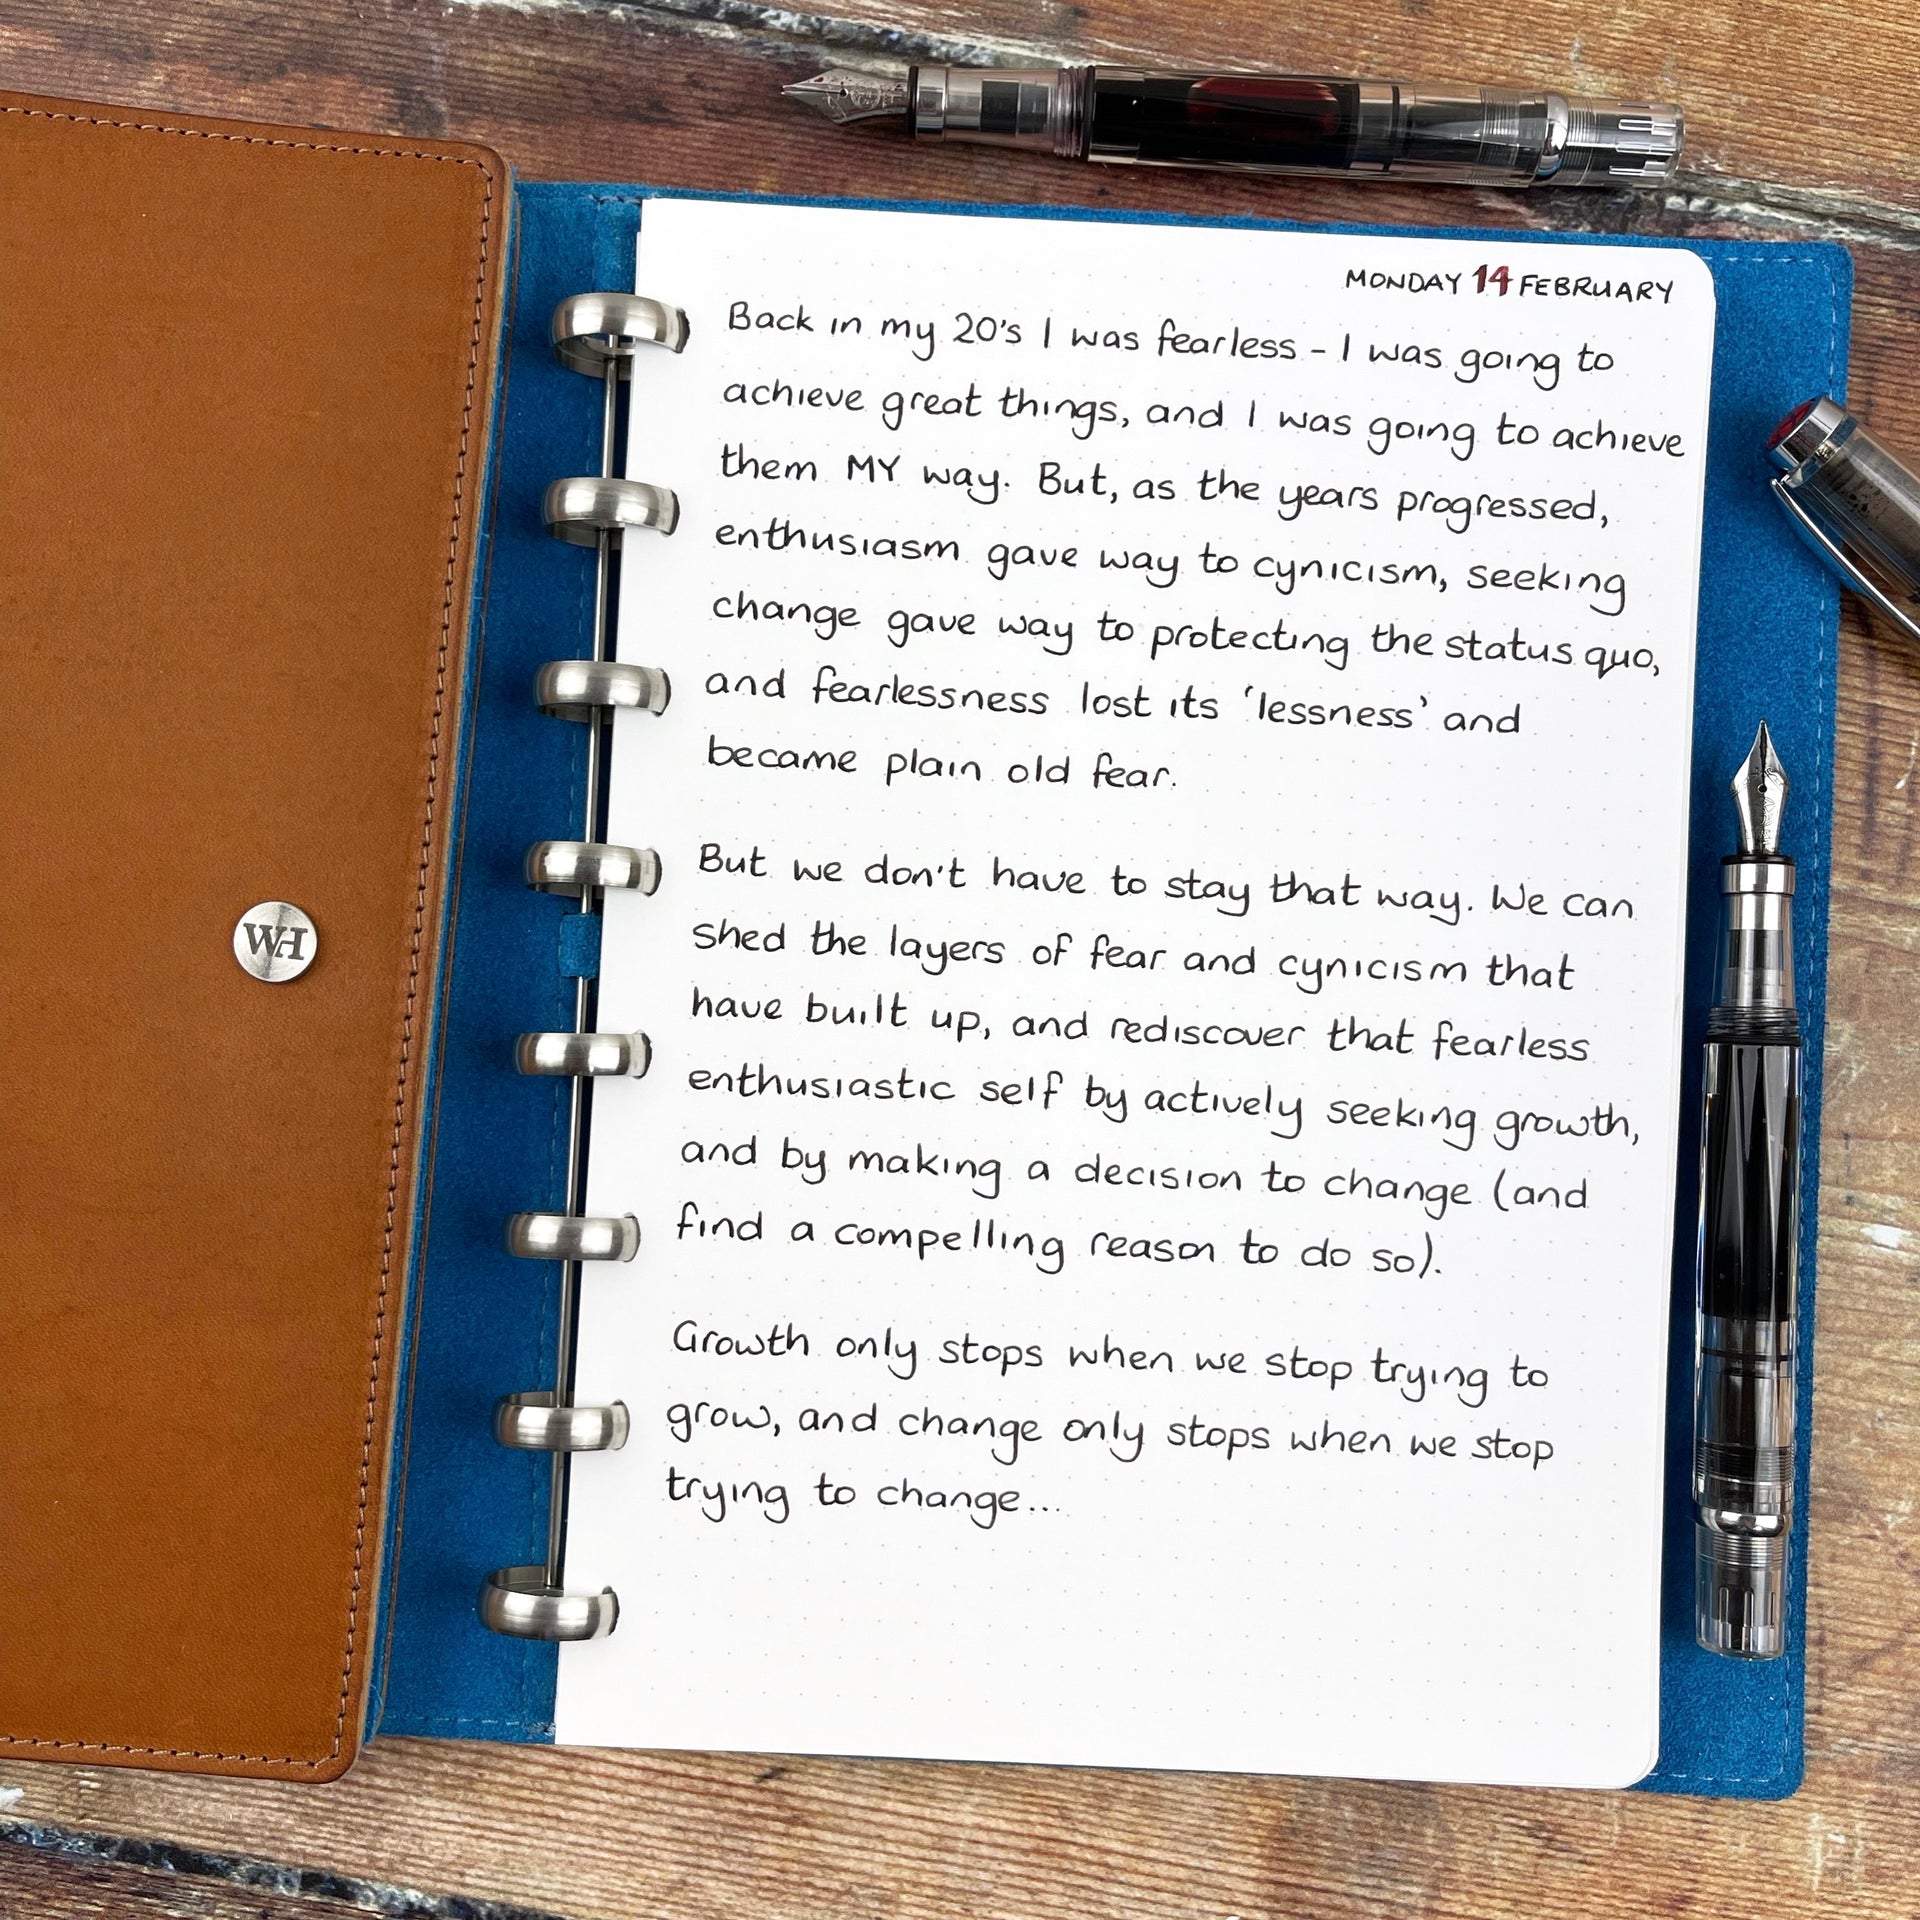 MONDAY 14 FEBRUARY
Back in my 20's I was fearless - I was going to
achieve great things, and I was going to achieve
them MY way. But, as the years progressed,
enthusiasm gave way to cynicism, seeking
change gave way to protecting the status quo,
and fearlessness lost its 'lessness' and
became plain old fear.
But we don't have to stay that way. We can
shed the layers of fear and cynicism that
have built up, and rediscover that fearless
enthusiastic self by actively seeking growth,
and by making a decision to change (and
find a compelling reason to do so).
Growth only stops when we stop trying to
grow, and change only stops when we stop
trying to change...
WH